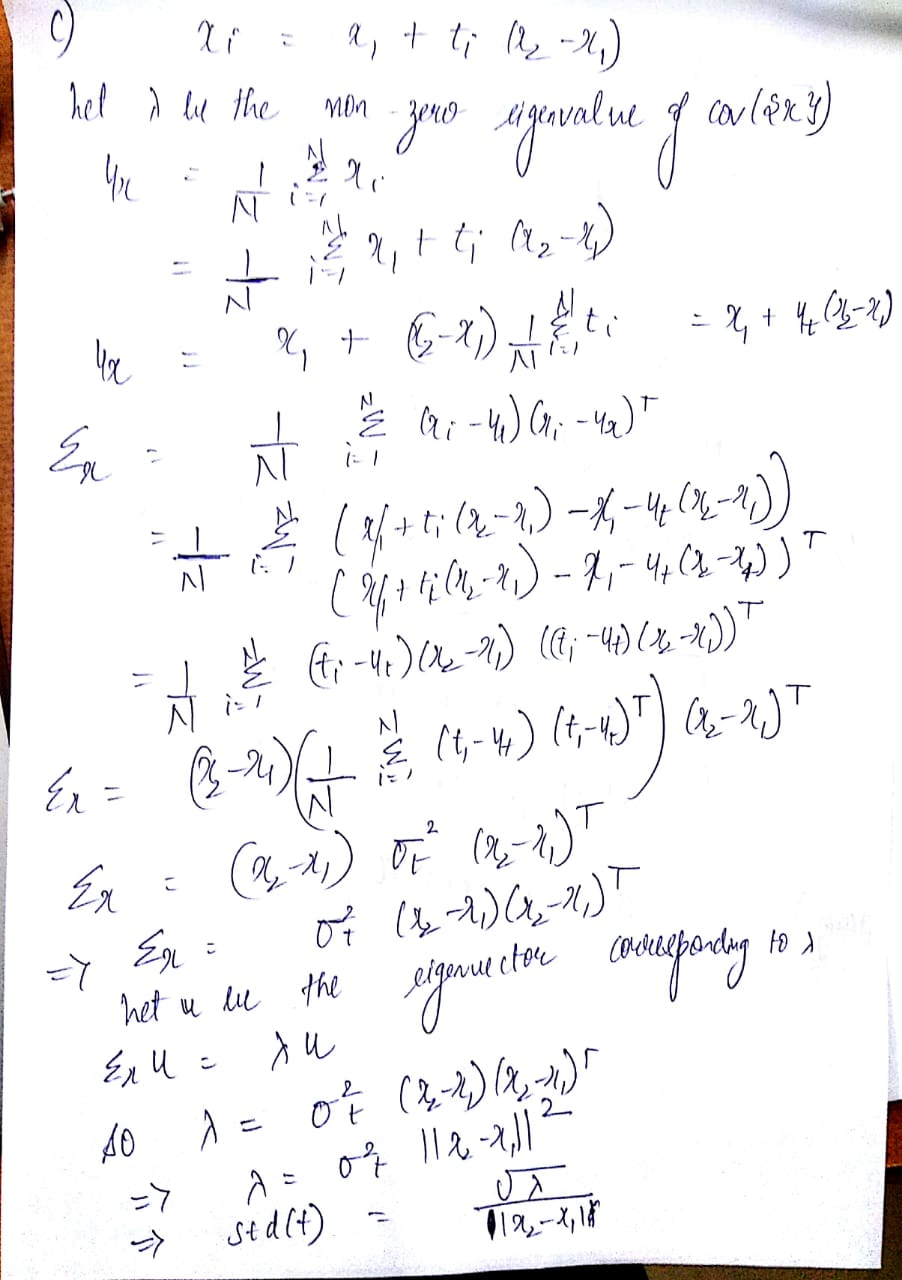 c) xᵢ = x₁ + tᵢ (x₂ - x₁)
let λ be the non-zero eigenvalue of cov({x})
μₓ = 1/N Σᵢ₌₁ᴺ xᵢ
= 1/N Σᵢ₌₁ᴺ x₁ + tᵢ (x₂ - x₁)
μₓ = x₁ + (x₂ - x₁) 1/N Σᵢ₌₁ᴺ tᵢ = x₁ + μₜ (x₂ - x₁)
Σₓ = 1/N Σᵢ₌₁ᴺ (xᵢ - μₓ) (xᵢ - μₓ)ᵀ
= 1/N Σᵢ₌₁ᴺ (x₁ + tᵢ (x₂ - x₁) - x₁ - μₜ (x₂ - x₁))
(x₁ + tᵢ (x₂ - x₁) - x₁ - μₜ (x₂ - x₁))ᵀ
= 1/N Σᵢ₌₁ᴺ (tᵢ - μₜ) (x₂ - x₁) ((tᵢ - μₜ) (x₂ - x₁))ᵀ
Σₓ = (x₂ - x₁) (1/N Σᵢ₌₁ᴺ (tᵢ - μₜ) (tᵢ - μₜ)ᵀ) (x₂ - x₁)ᵀ
Σₓ = (x₂ - x₁) σₜ² (x₂ - x₁)ᵀ
⇒ Σₓ = σₜ² (x₂ - x₁) (x₂ - x₁)ᵀ
let u be the eigenvector corresponding to λ
Σₓ u = λ u
so λ = σₜ² (x₂ - x₁) (x₂ - x₁)ᵀ
⇒ λ = σₜ² ||x₂ - x₁||²
⇒ std(t) = √λ / ||x₂ - x₁||